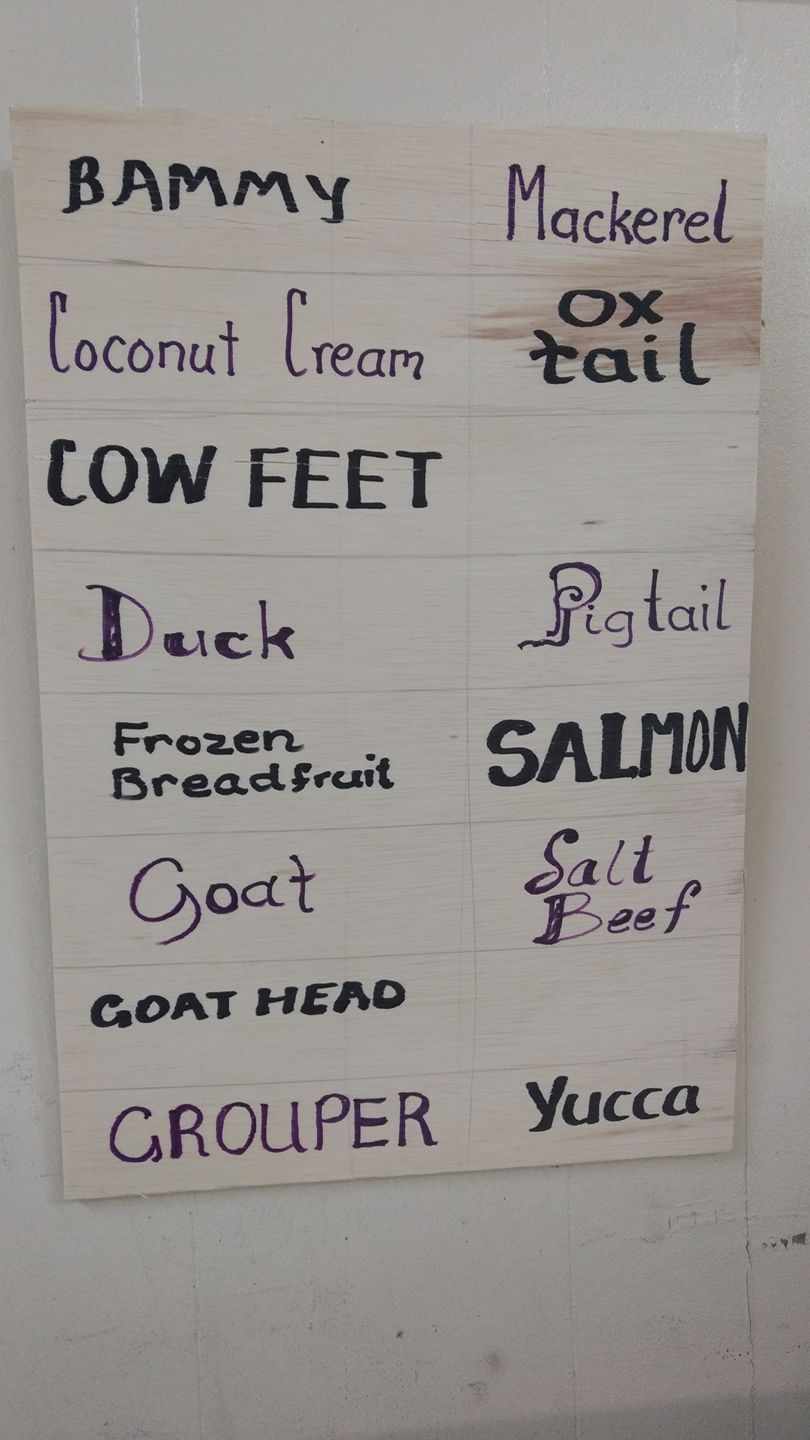 BAMMY
Coconut Cream
COW FEET
Duck
Frozen
Breadfruit
Goat
GOAT HEAD
GROUPER
Mackerel
Ox
tail
Pigtail
SALMON
Salt
Beef
Yucca